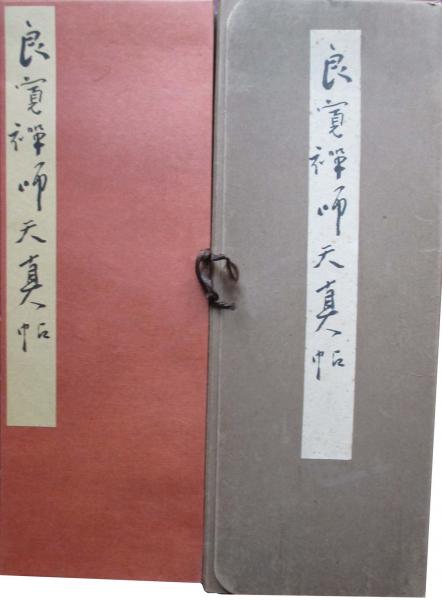 良寛禅師天真帖
良寛禅師天真帖